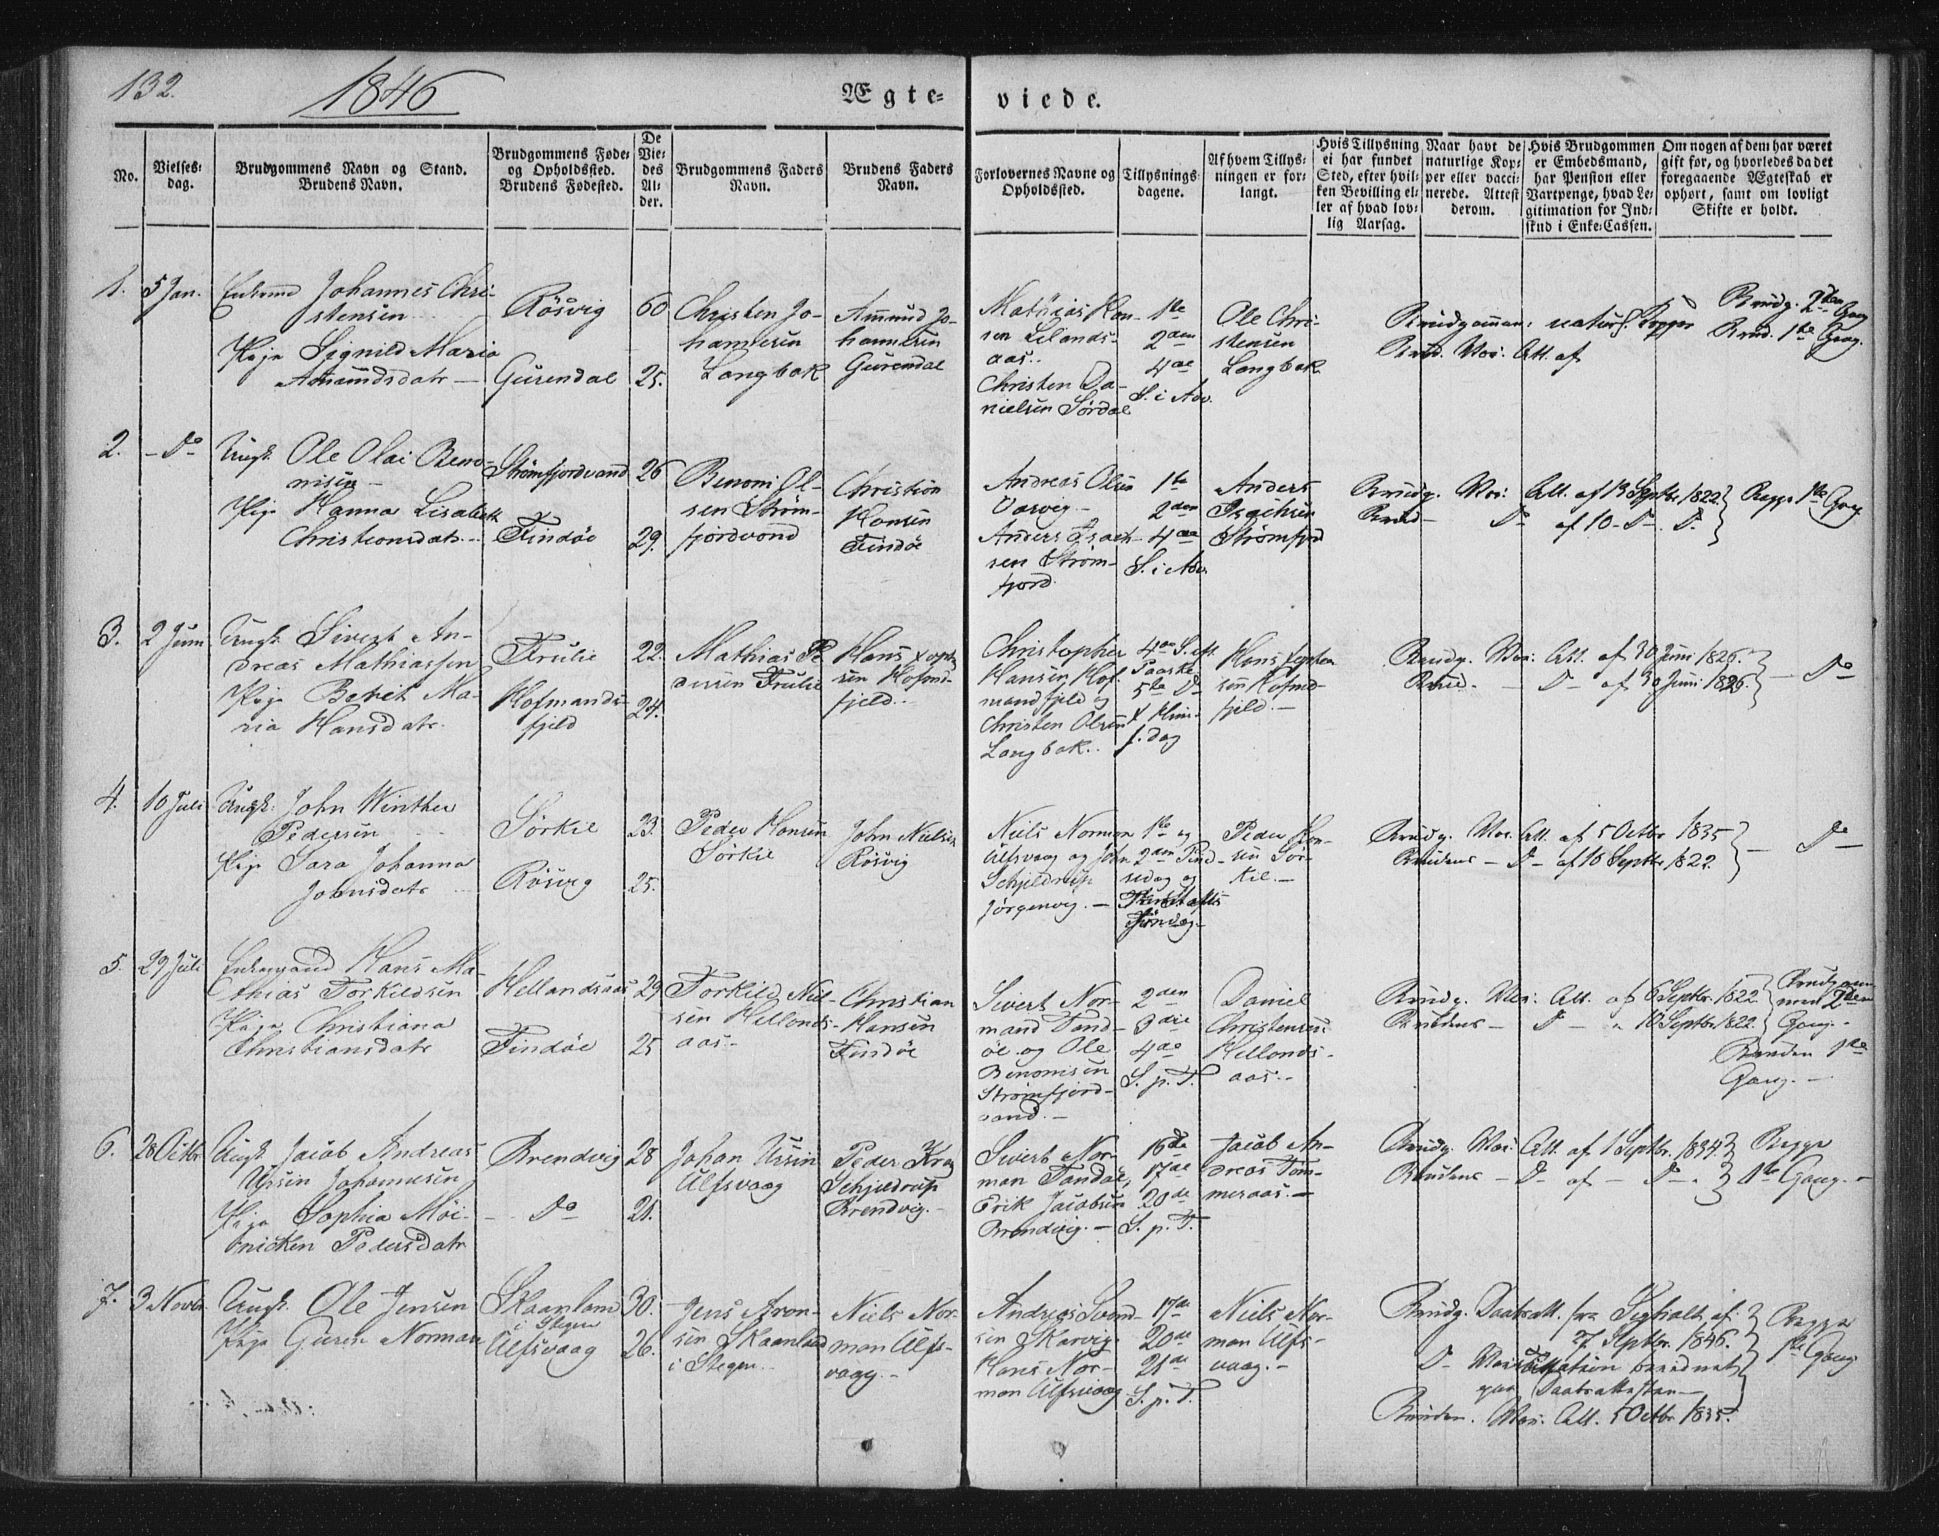 132.
1846
Ægte-
viede.
No.
Vielses-
dag.
Brudgommens Navn og Stand.
Brudens Navn.
Brudgommens Føde-
og Opholdssted.
Brudens Fødested.
De
Vie-
des
Al-
der.
Brudgommens Faders
Navn.
Brudens Faders
Navn.
Forlovernes Navne og
Opholdssted.
Tillysnings-
dagene.
Af hvem Tillys-
ningen er for-
langt.
Hvis Tillysning
ei har fundet
Sted, efter hvil-
ken Bevilling el-
ler af hvad lov-
lig Aarsag.
Naar havt de
naturlige Kop-
per eller vacci-
nerede. Attest
derom.
Hvis Brudgommen
er Embedsmand,
har Pension eller
Vartpenge, hvad Le-
gitimation for Ind-
skud i Enke-Cassen.
Om nogen af dem har været
gift før, og hvorledes da det
foregaaende Ægteskab er
ophørt, samt om lovligt
Skifte er holdt.
1.
5 Jan.
Enkemd Johannes Chri-
stensen
Pige Signild Maria
Amundsdatr
Røsvig
Gurendal
60
25.
Christen Jo-
hannesen
Langbak
Amund Jo-
hannesen
Gurendal
Mathias Han-
sen Leilands-
aas.
Christen Da-
nielsen Sørdal
1ste
2den
4de
S. i Adv.
Ole Chri-
stensen
Langbak
Brudgommen naturl. Kopper
Brud. Vac. Att. af
Brudg. 2den Gang
Brud. 1ste Gang.
2.
Do
Ungk. Ole Olai Beno-
nisen
Pige Hanna Lisabeth
Christiansdatr.
Strømfjordvand
Findøe
26
29.
Benoni Ol-
sen Strøm-
fjordvand
Christian
Hansen
Findøe
Andreas Olsen
Vasvig.
Anders Isach-
sen Strøm-
fjord
1ste
2den
4de
S. i Adv.
Anders
Isachsen
Strømfjord
Brudg. Vac. Att. af 13 Septbr. 1822.
Brud. Do af 10 Do Do
Begge 1ste Gang
3.
2 Juni
Ungk. Sivert An-
dreas Mathiassen
Pige Berit Ma-
ria Hansdatr.
Trulie
Hofmands-
fjeld
22.
24.
Mathias Pe-
dersen Trulie
Hans
sen Hofmd-
fjeld.
Christopher
Hansen Hof-
mandfjeld og
Christen Olsen
Langbak.
4de S. eft.
Paaske
5te Do
Him-
f. dag
Hans
sen Hofmd-
fjeld.
Brudg. Vac. Att. af 30 Juni 1826.
Brud. Do af 30 Juni 1826.
Do
4.
10 Juli
Ungk. John Winther
Pedersen
Pige Sara Johanna
Johnsdatr
Sørkil
Røsvig
23.
25.
Peder Hansen
Sørkil
John Nielsen
Røsvig
Niels Norman
Ulfsvaag og John
Schjeldrup
Jørgenvig.
1ste og
2den Pind-
sedag og
Søndag.
Peder Han-
sen Sør-
kil.
Brudg. Vac. Att. af 5 Octbr 1835
Brudens Do af 10 Septbr. 1822.
Do
5.
29 Juli
Enkemand Hans Ma-
thias Torkildsen
Pige Christiana
Christiansdatr
Hellandsaas
Findøe
29
25
Torkild Niel-
sen Hellands-
aas.
Christian
Hansen
Findøe
Sivert Nor-
mand Tand-
øe og Ole
Benonisen
Strømfjord-
vand.
2den
3die
4de
S. p. T.
Daniel
Christensen
Hellands-
aas.
Brudg. Vac. Att. af 6 Septbr. 1822.
Brudens Do " 10 Septbr. 1822.
Brudgom-
men 2den
Gang.
Bruden 1ste
Gang.
6.
28 Octbr
Ungk. Jacob Andreas
Ursin Johannesen
Pige Sophia Møi-
nicken Pedersdatr
Brendvig
Do
28
21.
Johan Ursin
Ulfsvaag
Peder Krog
Schjeldrup
Brendvig.
Sivert Nor-
man Tandøe,
Erik Jacobsen
Brendvig.
16de
17de
20de
S. p. T.
Jacob An-
dreas Tom-
meraas.
Brudg. Vac. Att. af 1 Septbr. 1834.
Brudens Do af Do
Begge
1ste Gang.
7.
3 Novbr.
Ungk. Ole Jensen
Pige Guren Norman
Skaanland
i Stegen
Ulfsvaag
30.
26.
Jens Aron-
sen Skaanland
i Stegen.
Niels Nor-
man Ulfs-
vaag.
Andreas Svend-
sen Skarvig.
Hans Nor-
man Ulfsvaag
17de
20de
21de
S. p. T.
Niels Nor-
man Ulfs-
vaag.
Brudg. Daabsatt. fra af
27 Septbr. 1846.
Do Vaccination bemdnet
paa Daabsattesten
Bruden. Vac. Att. 5 Octbr 1835.
Begge
1ste Gang